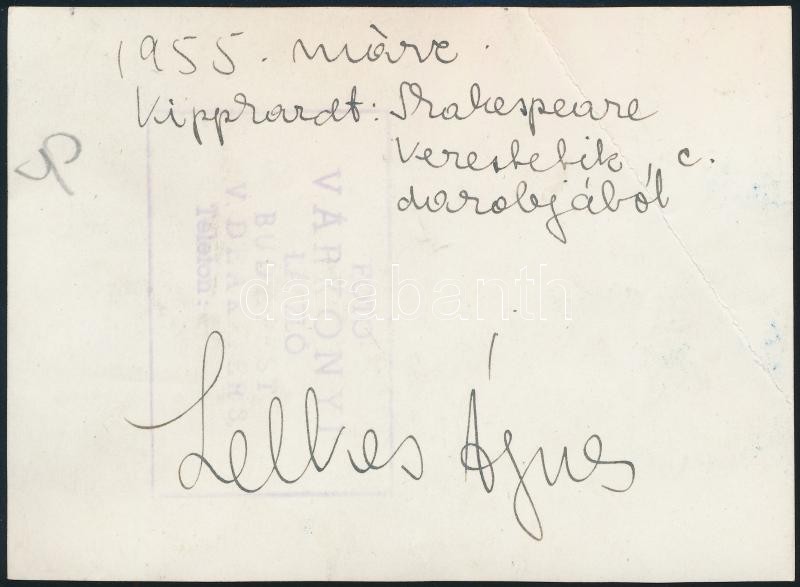 1955. márc.
Kipphardt: Shakespeare
kerestetik, c.
darabjából
Lelkes Ágnes
FOTO
VÁRKONYI
LÁSZLÓ
BUDAPEST
V. DEÁK
Telefon:
darabanth